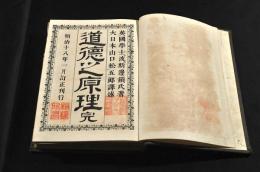 英國學士波斯邊鎖氏著
大日本山口松五郎譯述
道德之原理 完
明治十八年一月訂正刊行